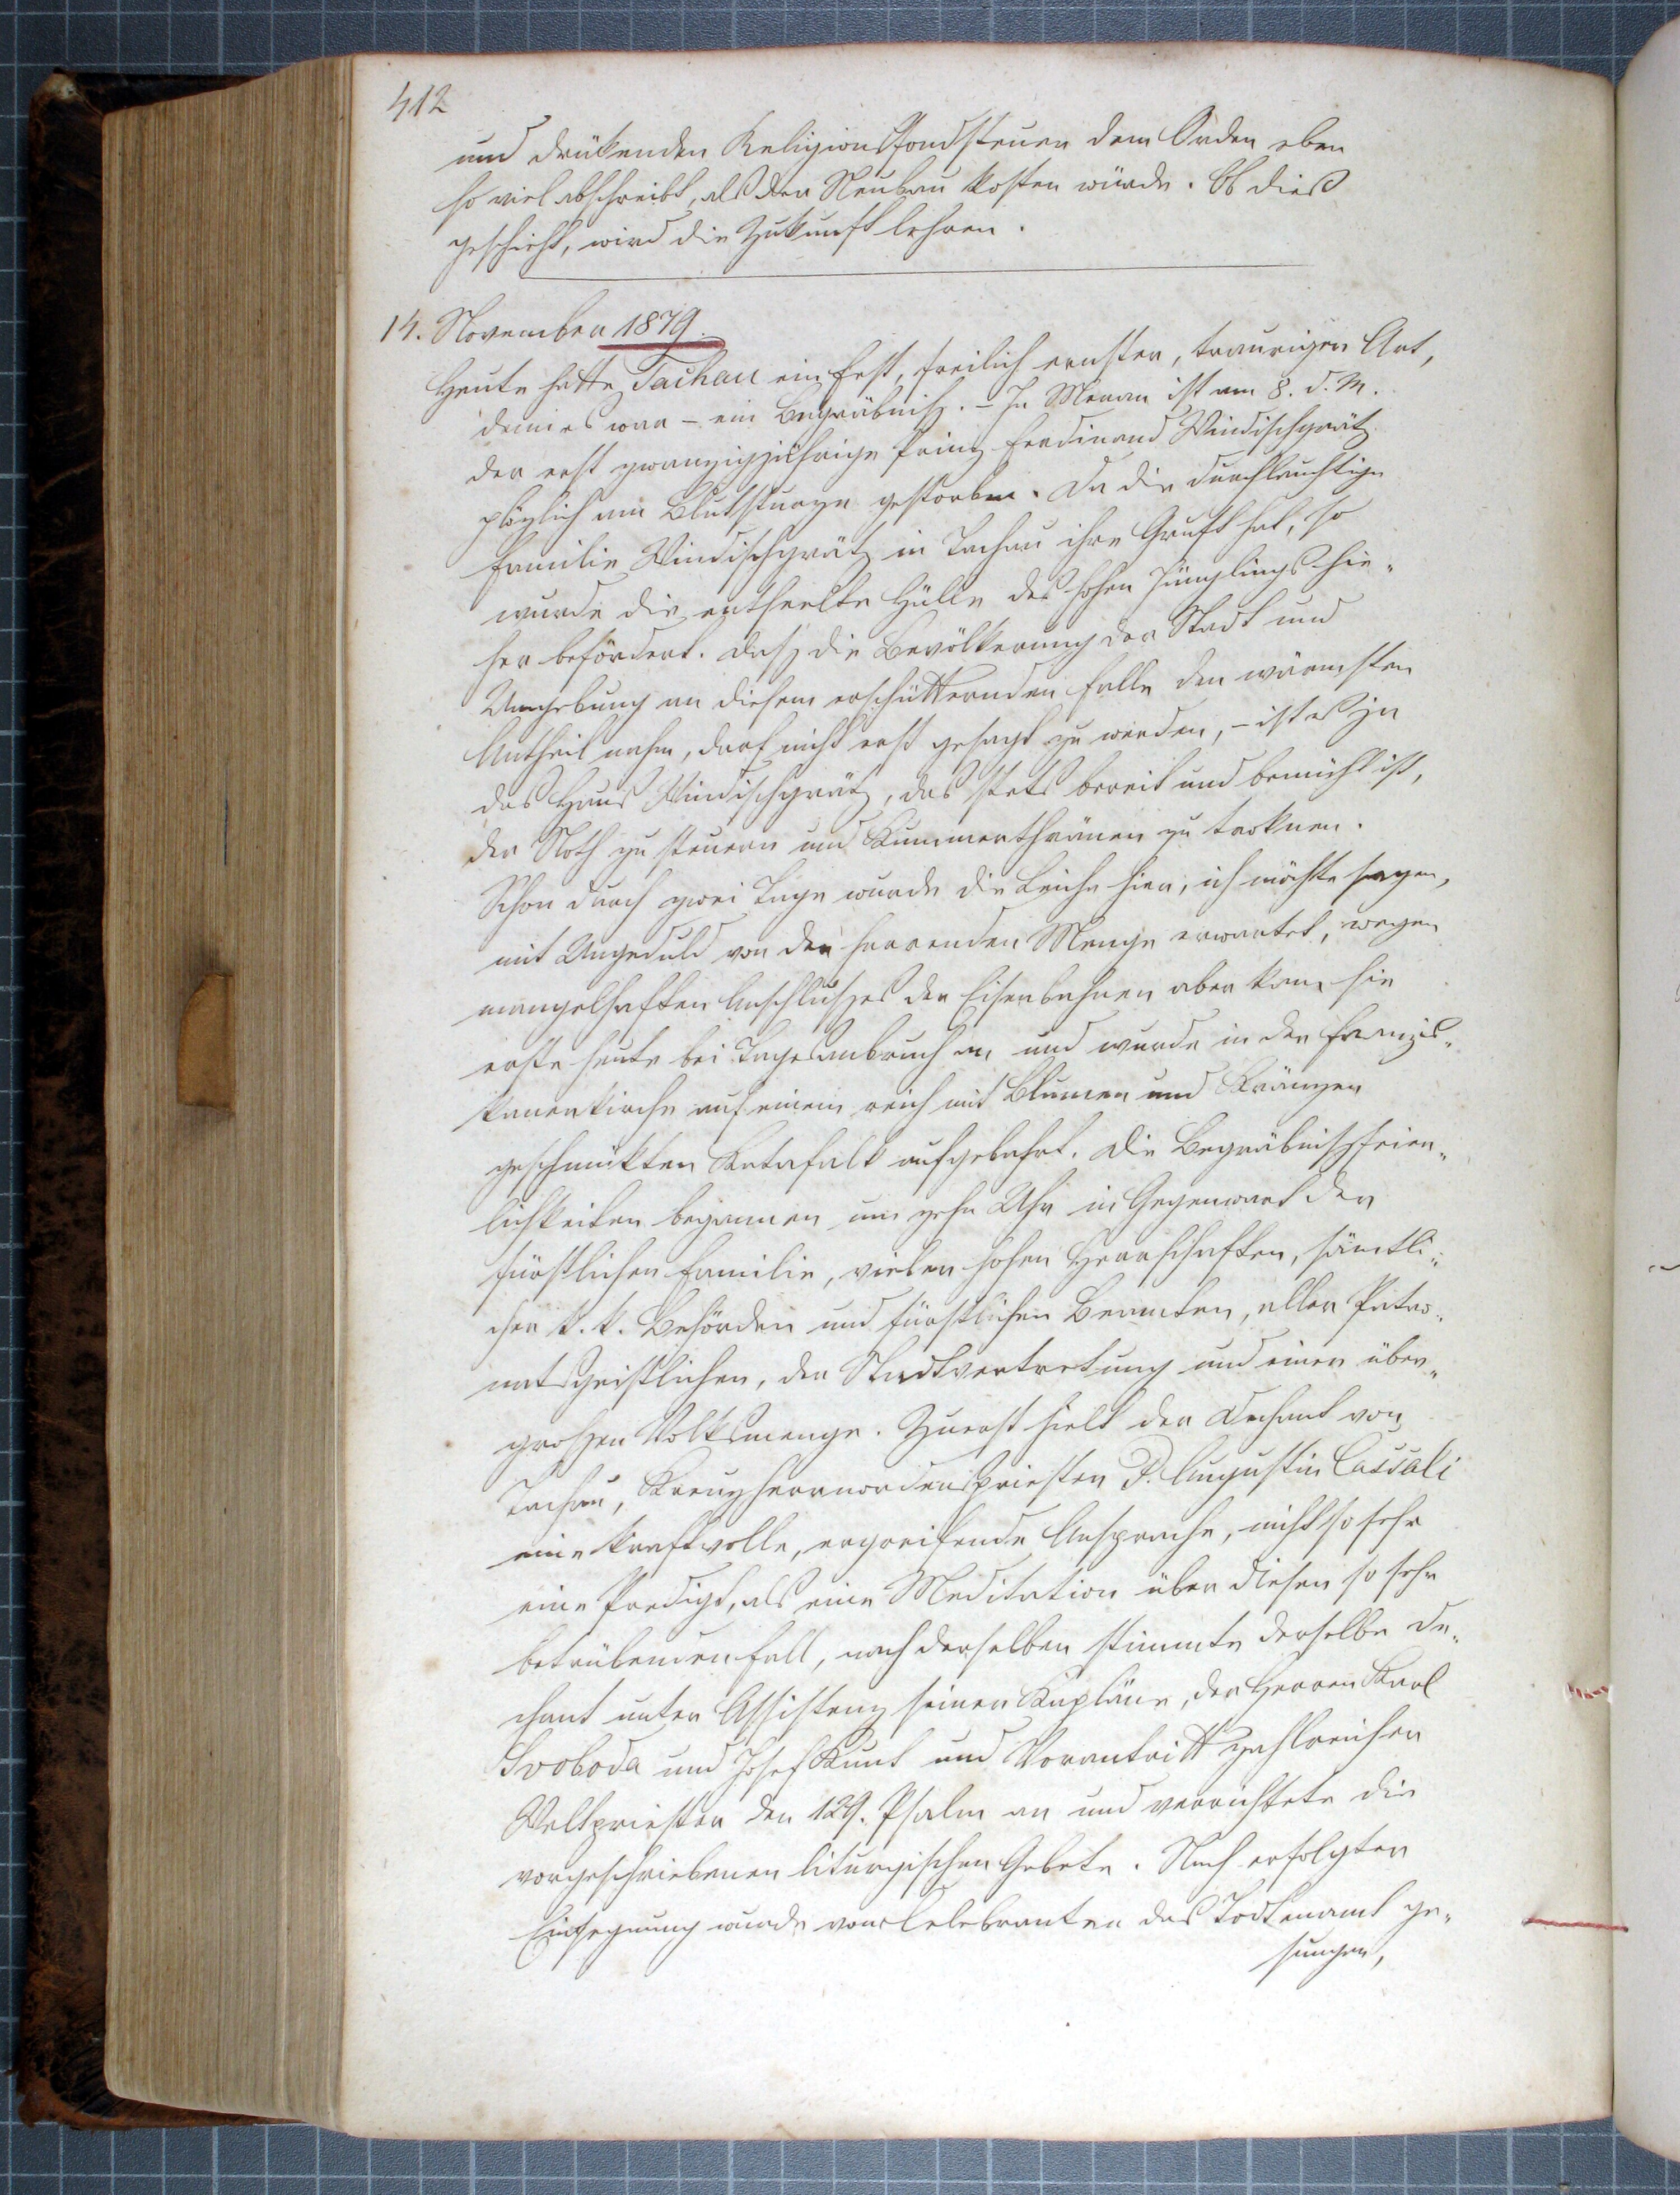 412
und drükenden Religionsfondsteuer dem Orden eben
so viel abschreibt, als der Neubau kosten würde. Ob dieß
geschieht, wird die Zukunft lehren.
14. November 1879.
Heute hatte Tachau ein Fest, freilich ernster, trauriger Art,
denn es war – ein Begräbniß. – In Meran ist am 8. d. M.
der erst zwanzigjährige Prinz Ferdinand Windischgrätz
plözlich am Blutsturze gestorben. Da die durchlauchtige
Familie Windischgrätz in Tachau ihre Gruft hat, so
wurde die entseelte Hülle des hohen Jünglings hie„
her befördert. Daß die Bevölkerung der Stadt und
Umgebung an diesem erschütternden Falle den wärmsten
Antheil nahm, darf nicht erst gesagt zu werden, – ist es ja
das Haus Windischgrätz, das stets bereit und bemüht ist,
der Noth zu steuern und Kummerthränen zu troknen.
Schon durch zwei Tage wurde die Leiche hier, ich möchte sagen,
mit Ungeduld von der harrenden Menge erwartet, wegen
mangelhaften Anschlußes der Eisenbahnen aber kam sie
erste heute bei Tagesanbruch an und wurde in der Franzis„
kanerkirche auf einem reich mit Blumen und Kränzen
geschmükten Katafalk aufgebahrt. Die Begräbnißfeier„
lichkeiten begannen um zehn Uhr in Gegenwart der
fürstlichen Familie, vieler hohen Herrschaften, sämtli„
cher k. k. Behörden und fürstlichen Beamten, aller Patro„
natsgeistlichen, der Stadtvertretung und einer über„
großen Volksmenge. Zuerst hielt der Dechant von
Tachau, Kreuzherrnordenspriester P. Augustin Cassali
eine kraftvolle, ergreifende Ansprache, nicht so sehr
eine Predigt, als eine Meditation über diesen so sehr
betrübenden Fall, nach derselben stimmte derselbe De„
chant unter Assistenz seiner Kapläne, der Herren Karl
Svoboda und Josef Kunt und Vorantritt zahlreicher
Weltpriester den 129. Psalm an und verrichtete die
vorgeschriebenen liturgischen Gebete. Nach erfolgter
Einsegnung wurde vom Celebranten das Todtenamt ge„
sungen,